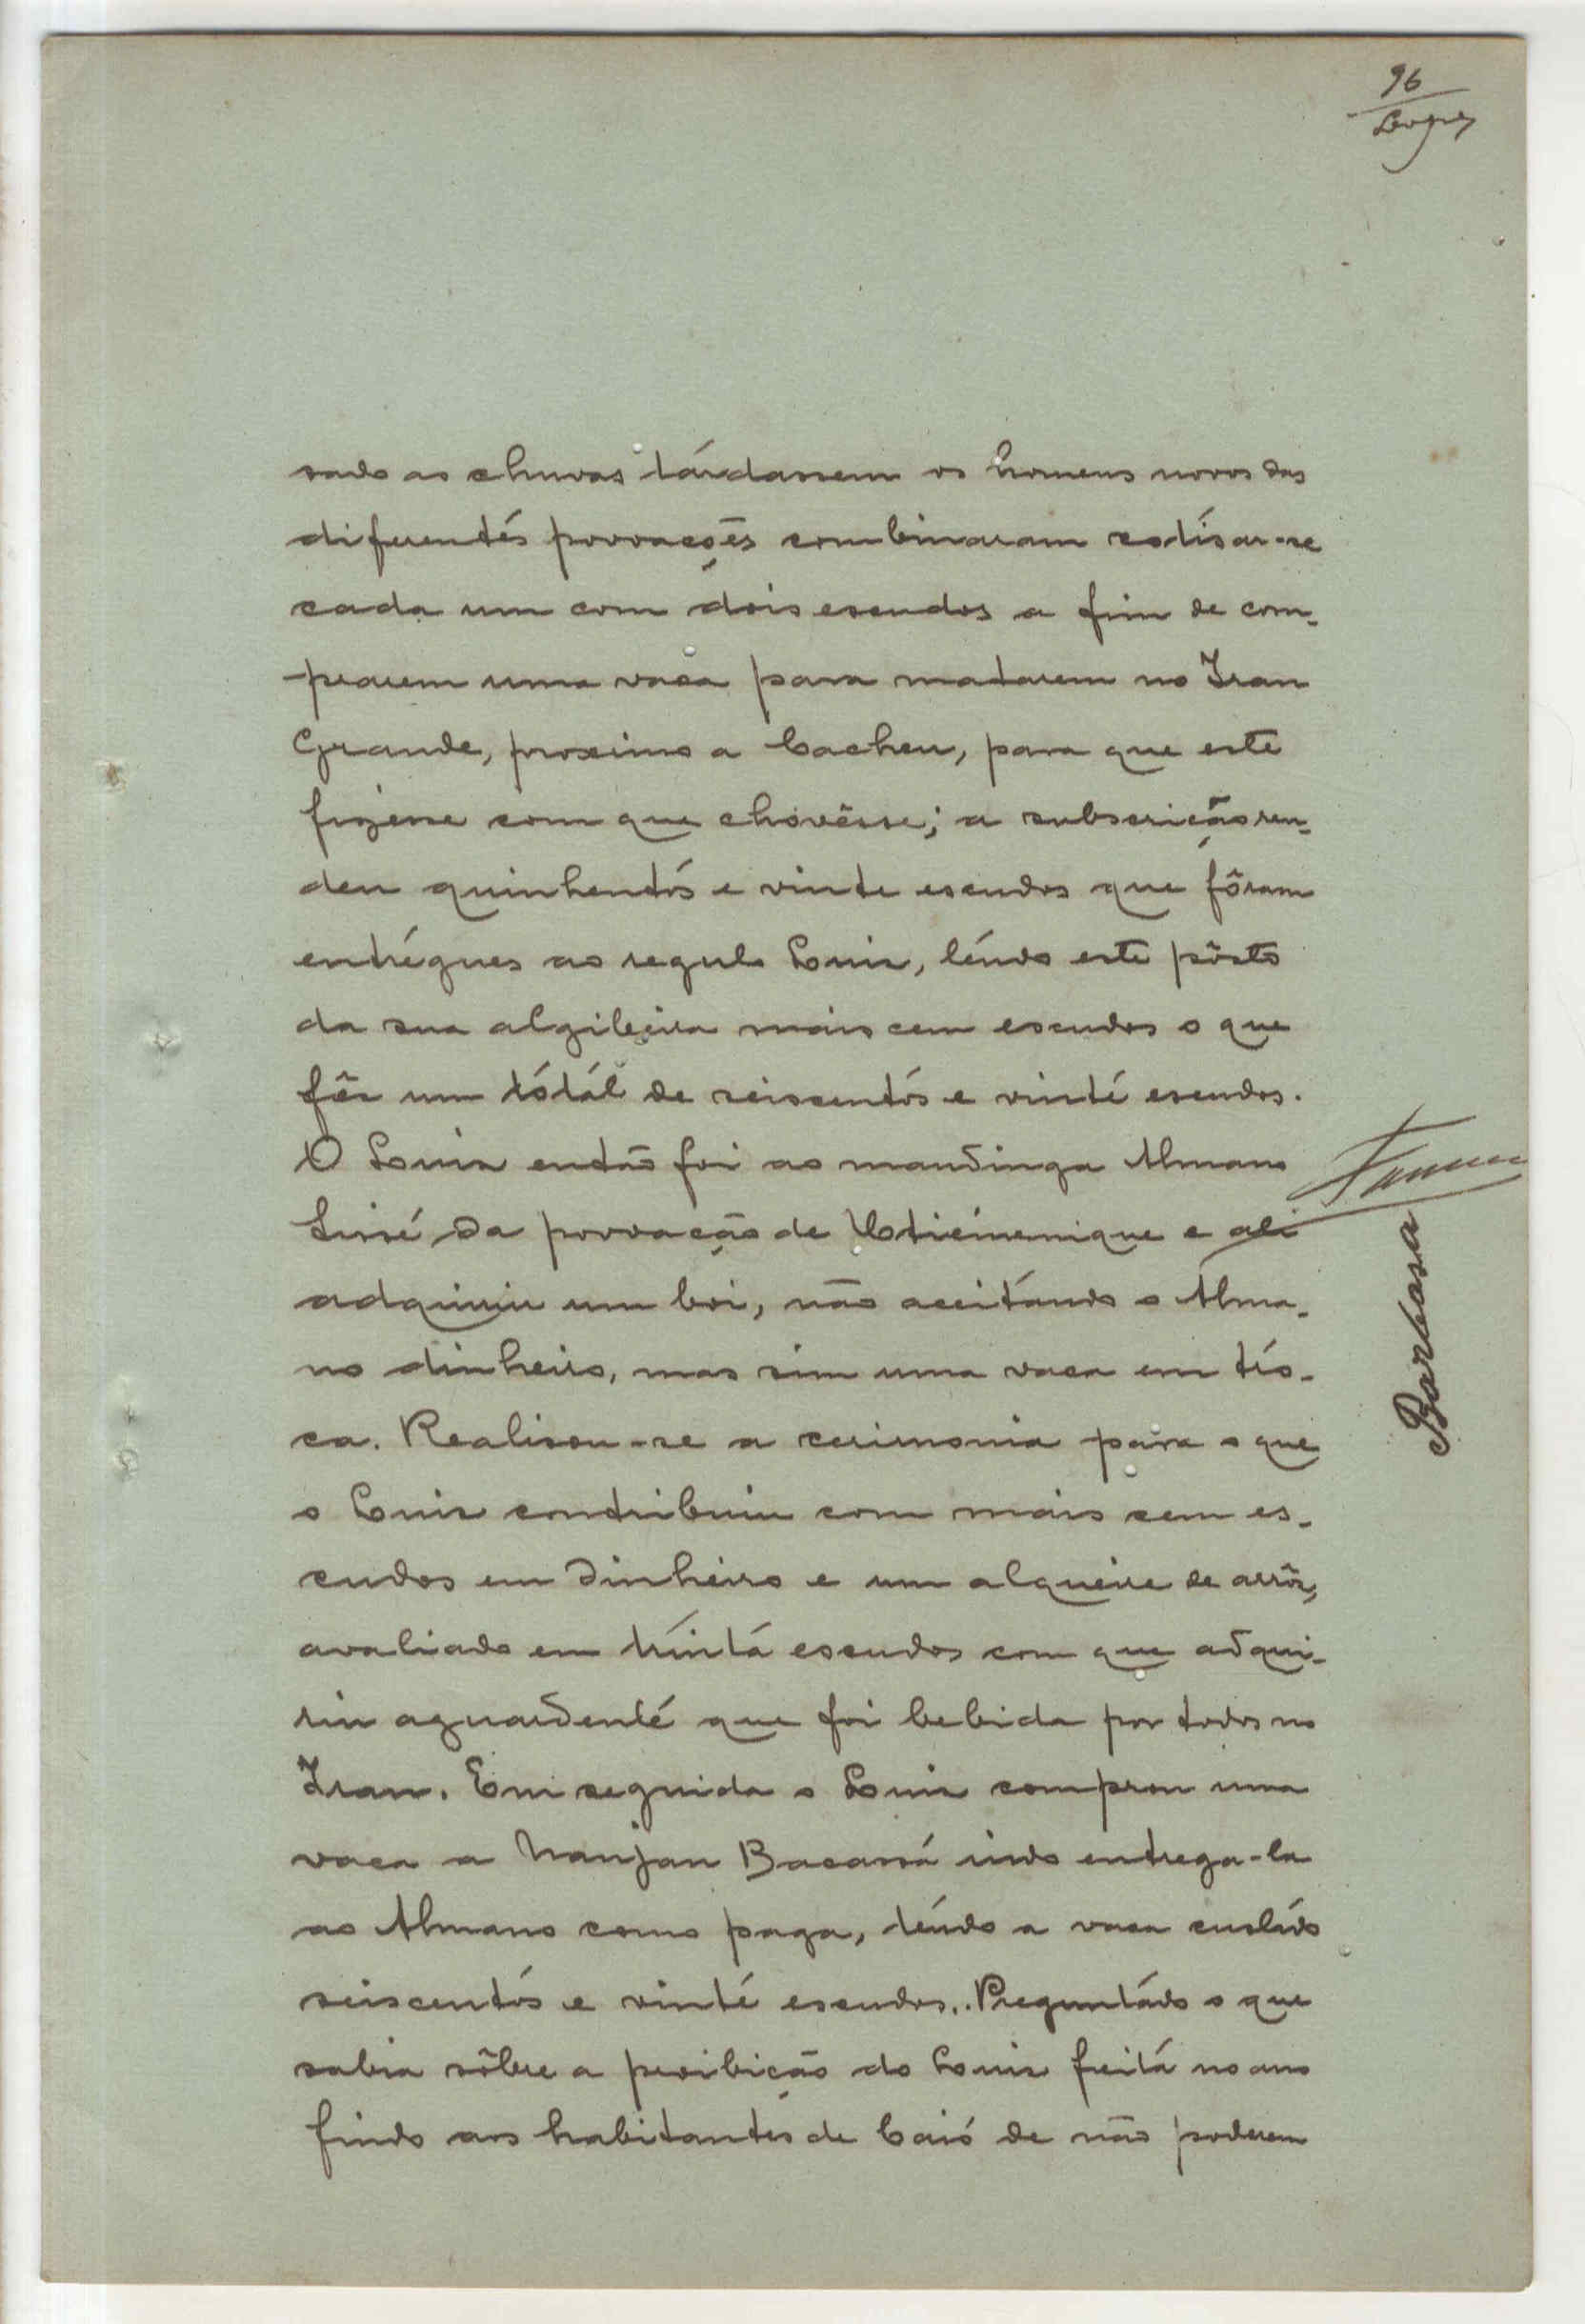 96
Lopes
sado as chuvas tárdassem os homens novos das
diferentés povoações combinaram cotísar-se
cada um com dois escudos a fim de com-
prarem uma vaca para matarem no Iran
Grande, proximo a Cacheu, para que este
fizesse com que chovêsse; a subscrição ren-
deu quinhentós e vinte escudos que fôram
entrégues ao regulo Luis, téndo este pôsto
da sua algibeira mais cem escudos o que
fês um tótál de seiscentós e vinté escudos.
O Luis então foi ao mandinga Almano
Sissé da povoação de e ali
adquiriu um boi, não aceitándo o Alma-
no dinheiro, mas sim uma vaca em tró-
ca. Realisou-se a cerimonia para o que
o Luis contribuiu com mais cem es-
cudos em dinheiro e um alqueire de arrôz,
avaliado em trintá escudos com que adqui-
riu aguardenté que foi bebida por todos no
Iran. Em seguida o Luis comprou uma
vaca a Nanjan Bacassá indo entrega-la
ao Almano como paga, téndo a vaca custádo
seiscentós e vinté escudos. Preguntádo o que
sabia sôbre a proibição do Luis feitá no ano
findo aos habitantes de Caió de não poderem
Barbosa